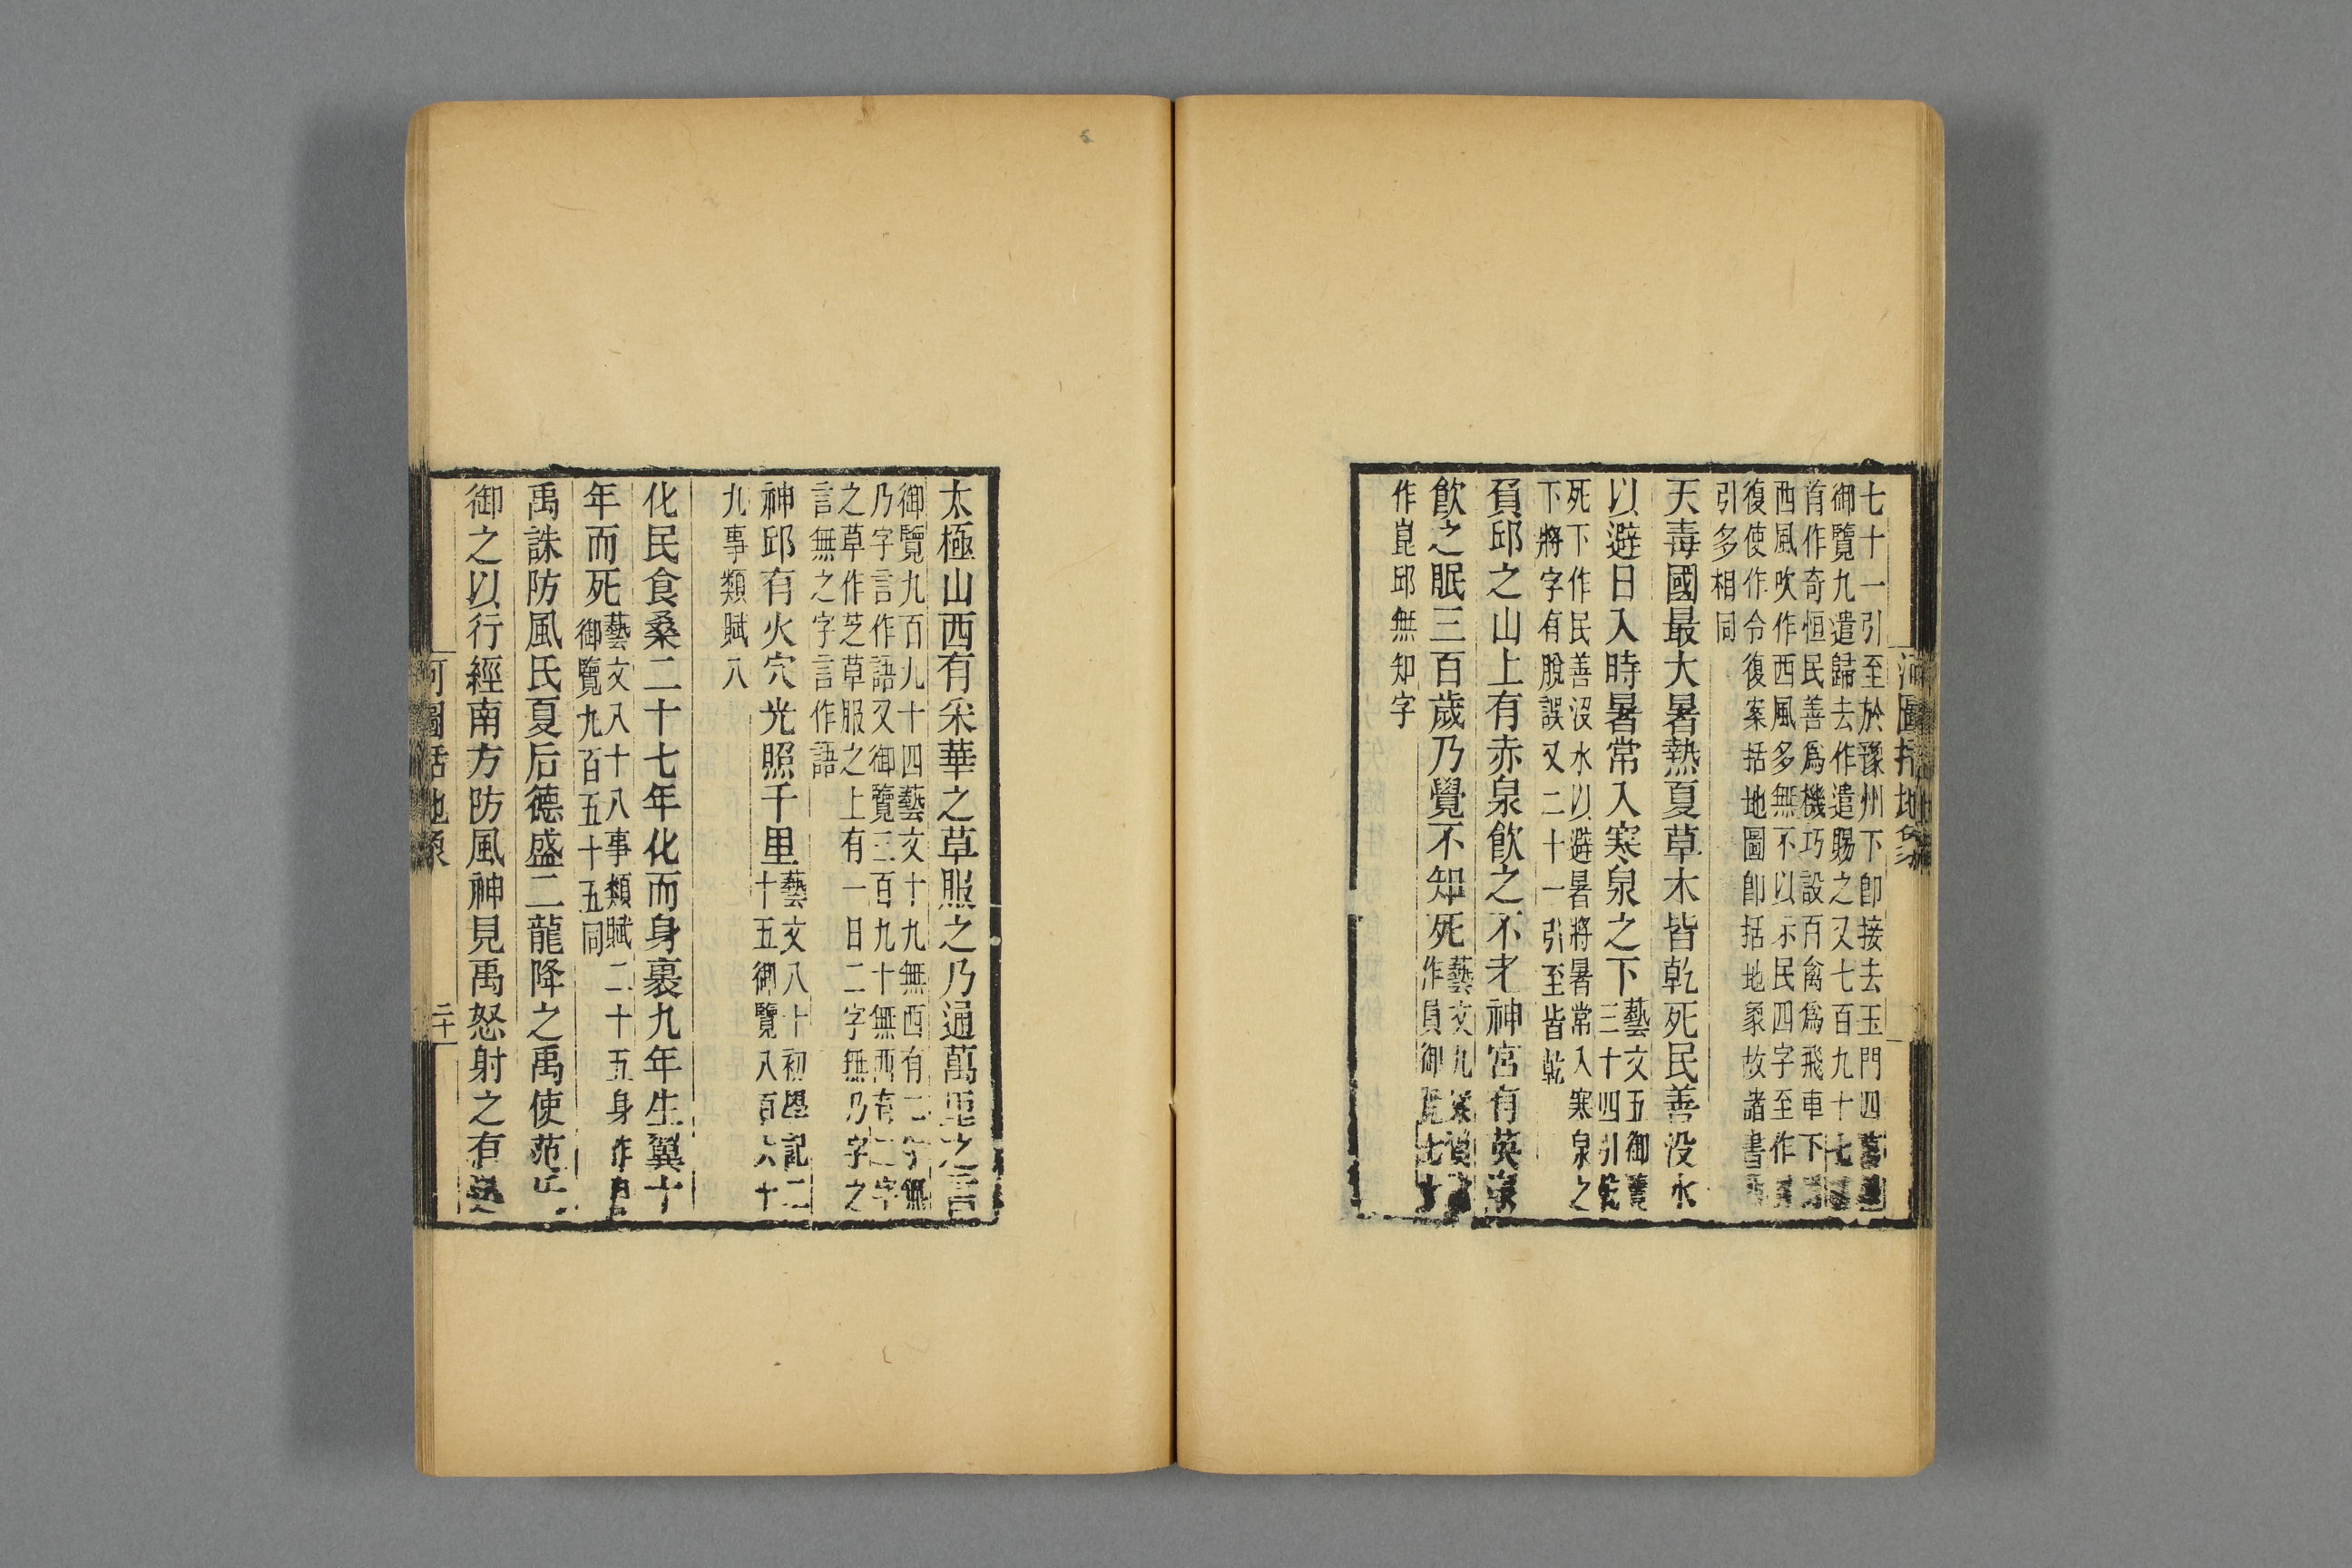 河圖括地象
七十一引至於豫州下卽接去玉門四
御覽九遣歸去作遣賜之又七百九十七
首作奇恒民善爲機巧設百禽爲飛車下
西風吹作西風多無不以示民四字至作
復使作令復案括地圖卽括地象故諸書
引多相同
天毒國最大暑熱夏草木皆乾死民善没水
以避日入時暑常入寒泉之下藝文五御覽
三十四引
死下作民善没水以避暑將暑常入寒泉之
下將字有脫誤又二十一引至皆乾
負邱之山上有赤泉飲之不老神宮有英泉
飲之眠三百歲乃覺不知死藝文九
作員御覽七十
作崑邱無知字
太極山西有采華之草服之乃通萬里之言
御覽九百九十四藝文十九無西有二字無
乃字言作語又御覽三百九十無西有二字
之草作芝草服之上有一日二字無乃字之
言無之字言作語
神邱有火穴光照千里藝文八十初學記二
十五御覽八百六十
九事類賦八
化民食桑二十七年化而身裹九年生翼十
年而死藝文八十八事類賦二十五身作
御覽九百五十五同
禹誅防風氏夏后德盛二龍降之禹使范氏
御之以行經南方防風神見禹怒射之有
河圖括地象
二十